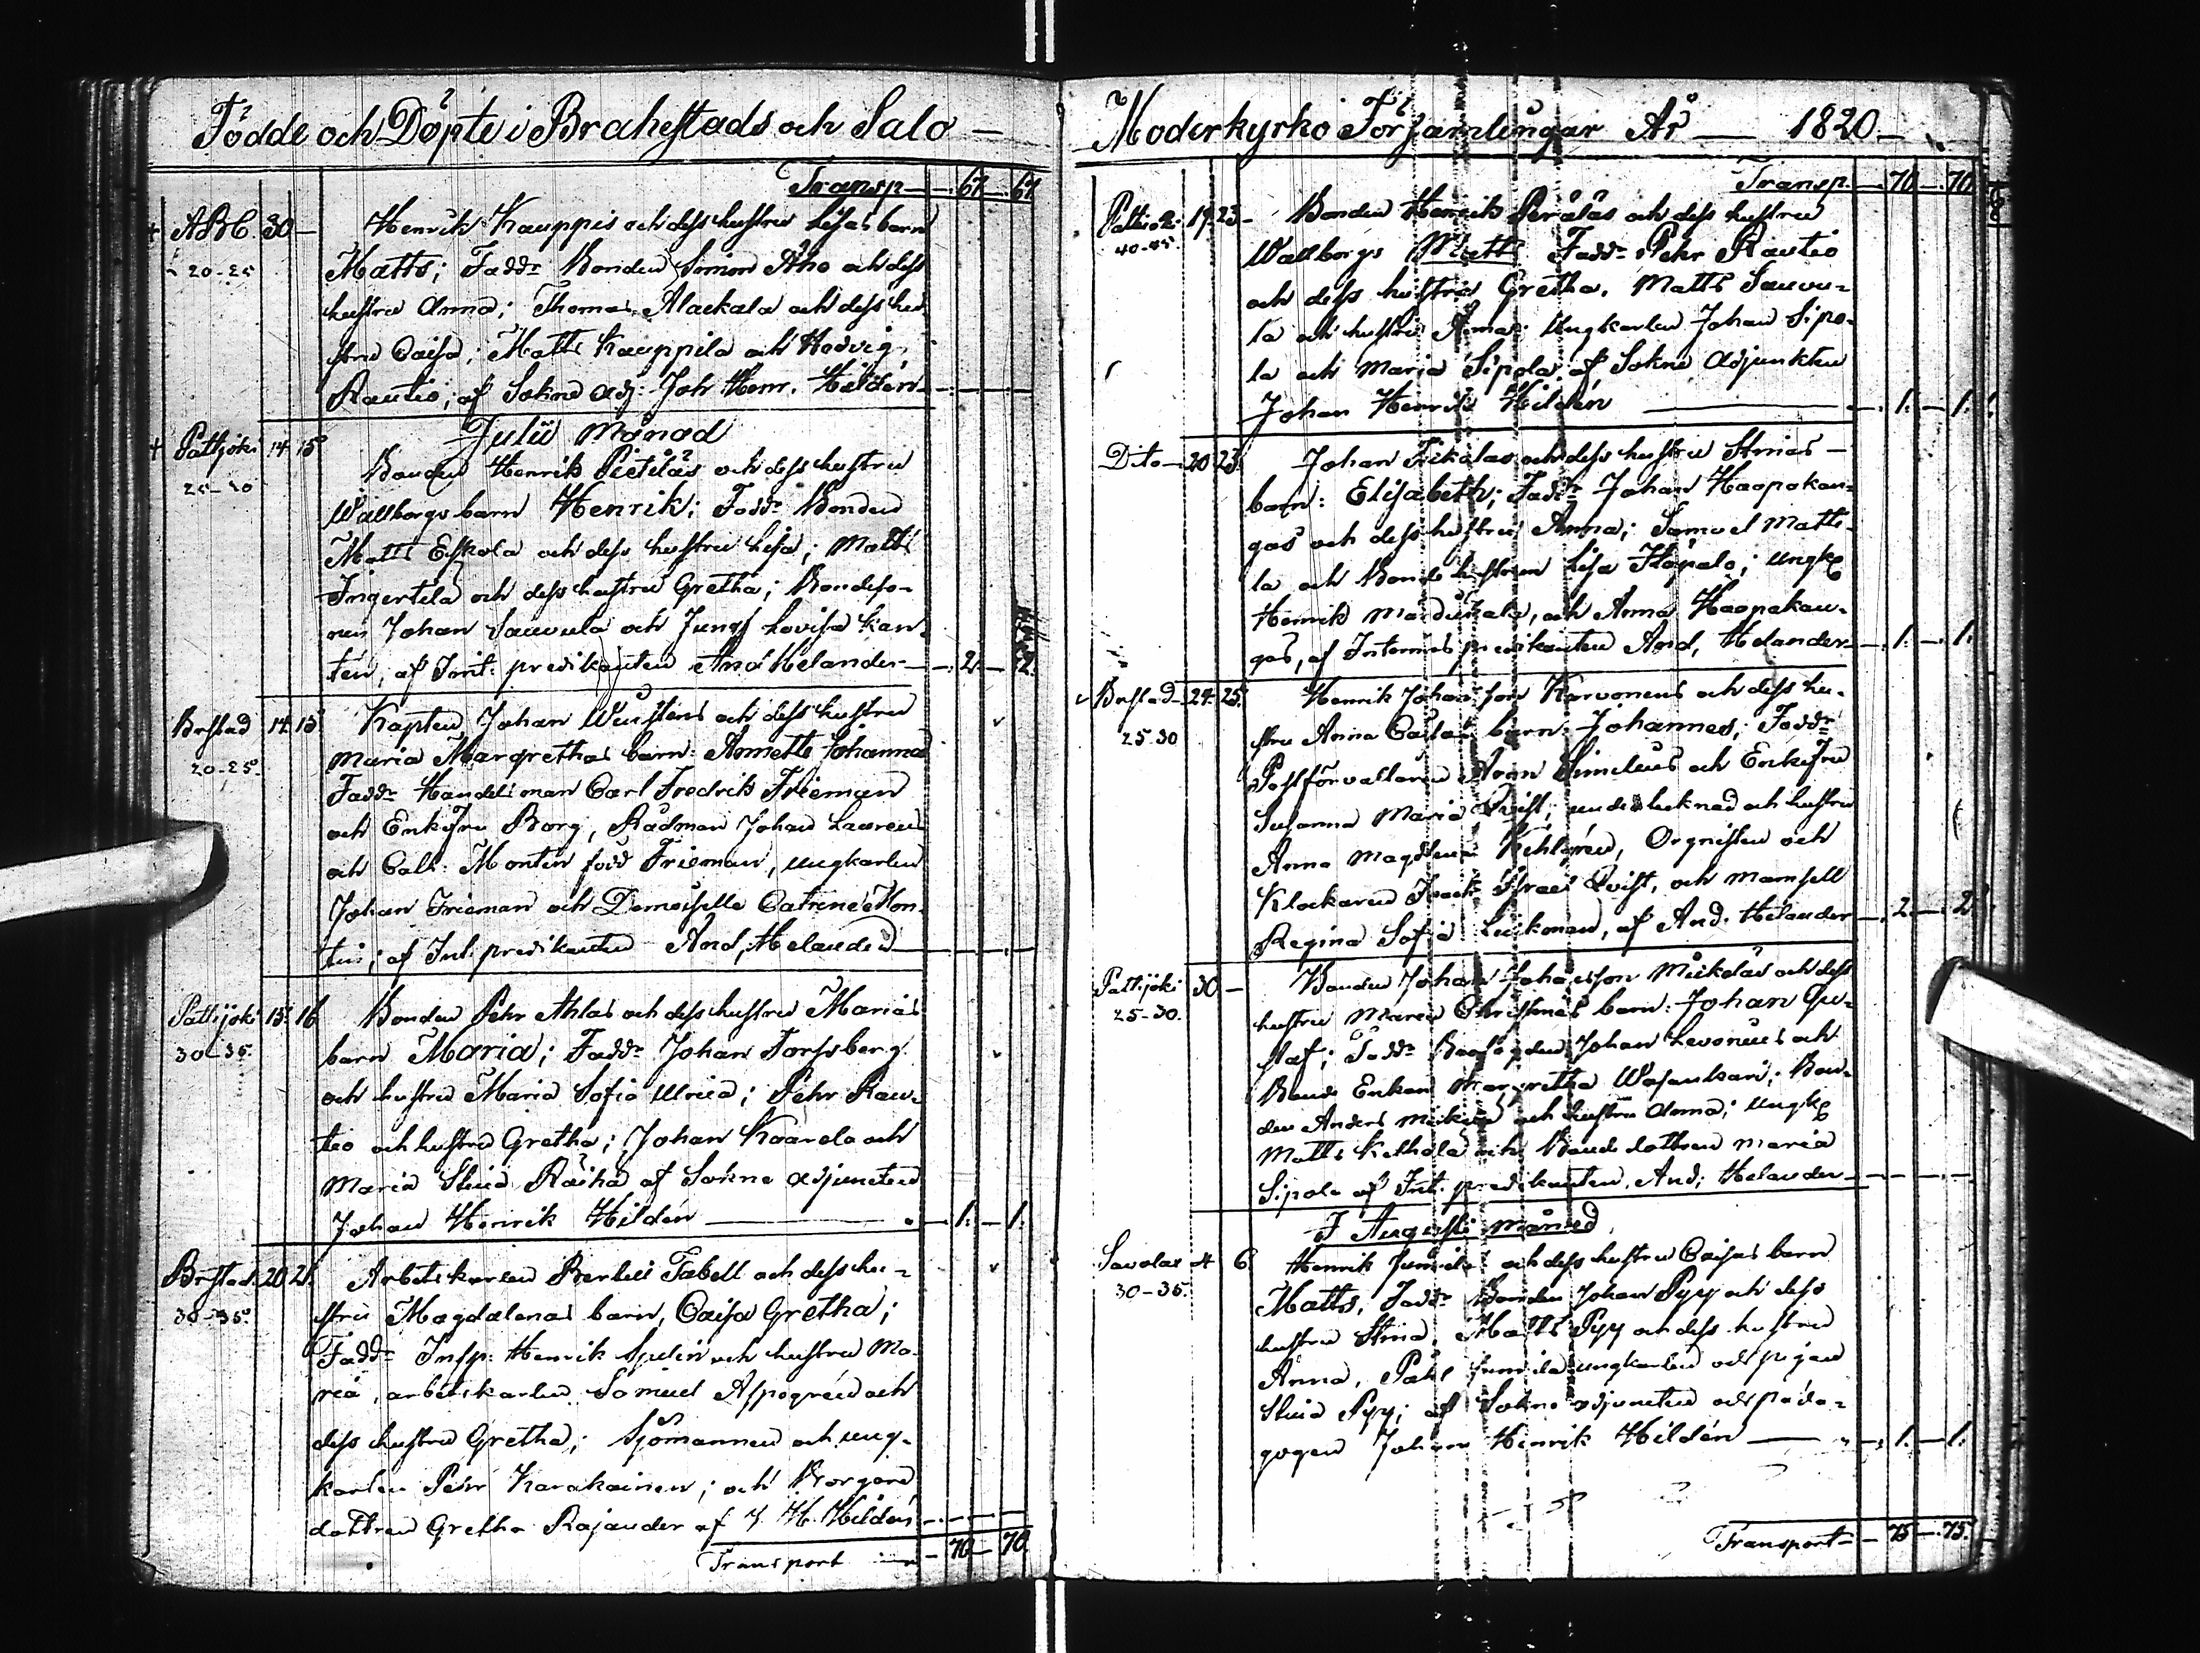 Födde och Döpte i Brahestads och Salo —
Transp — 67 — 67
+ ABC. 30 — Henrik Kauppis och dess hustru Lisas barn
20-25 Matts; Fadd:r Bonden Simon Aho och dess
hustru Anna; Thomas Alackala och dess hu-
stru Caisa; Matts Kauppila och Hedvig
Rautio; af Sokne Adj: Joh Henr. Hildén
Julii Månad
+ Pattjoki 14 15 Bonden Henrik Pietiläs och dess hustru
25-30 Wallborgs barn Henrik; Fadd:r Bonden
Matts Eskola och dess hustru Lisa; Matts
Ingertila och dess hustru Gretha; Bondeso-
nen Johan Sauvula och Jungf Lovisa Kan-
tén, af Int: predikanten And Helander — 2 — 2.
Brhstad 14 15 Kapten Johan Wensténs och dess hustru
20-25. Maria Margrethas barn: Annette Johanna
Fadd:r Handelsman Carl Fredrik Frieman
och Enkefru Borg, Rådman Johan Laurén
och Cath: Montin född Frieman, ungkarlen
Johan Frieman och Demoiselle Catrine Mon-
tin; af Int: predikanten And, Helander
Pattijoki 15 16 Bonden Pehr Ahlas och dess hustru Marias
30-35. barn Maria; Fadd:r Johan Forssberg
och hustru Maria Sofia Ulrica; Pehr Rau-
tio och hustru Gretha; Johan Kaarela och
Maria Stina Räihä af Sokne adjuncten
Johan Henrik Hildén — 1. — 1.
Brhstad. 20 21. Arbetskarlen Bertus Tabell och dess hu-
30-35. stru Magdalenas barn, Caisa Gretha;
Fadd:r Insp: Henrik Spelin och hustru Ma-
ria, arbetskarlen Samuel Aspegrén och
dess hustru Gretha; Sjömannen och ung-
karlen Pehr Karakainen; och Borgare
dottren Gretha Rajander af J. H. Hildén
Transport — 70 — 70
Moderkyrko Församlingar År — 1820 —
Transp. — 70 — 70
Pattioki 19 23 — Bonden Henrik Peräläs och dess hustru
40-45. Wallborgs Matts Fadd:r Pehr Rautio
och dess hustru Gretha, Matts Sauvu-
la och hustru Anna; Ungkarlen Johan Sipo-
la och Maria Sipola af Sokne Adjunkten
Johan Henrik Hildén — 1. — 1.
Dito — 20 23. Johan Fikolas och dess hustru Stinas —
barn: Elisabeth; Fadd:r Johan Haapakan-
gas och dess hustru Anna; Samuel Matti-
la och Bonde hustrun Lisa; Ungk
Henrik, och Anna Haapakan-
gas, af Intermis predikanten And, Helander — 1. — 1.
Brhstad — 24 25. Henrik Johansson Karvonens och dess hu-
25-30 stru Anna Caisas barn: Johannes; Fadd:r
Postförvaltaren Aron Simelius och Enkefru
Susanna Maria Qvist, och hustru
Anna Magdlena, Orgnisten och
Klockaren Isack Israel Qvist, och Mamsell
Regina Sofia Luckman, af And. Helander — 2. — 2
Pattijoki 30 — Bonden Johan Johansson Mickelas och dess
25-30. hustru Maria Christinas barn: Johan Gu-
staf; Fadd:r Johan Levonius och
Bonde Enkan Margretha Wasankari; Bon-
den Anders och hustru Anna; Ungk
Matts Kethola och Bonde dottren Maria
Sipola af Int: predikanten, And; Helander
I Augusti månad
Savolax 4 6. Henrik Junnila och dess hustru Caisas barn
30-35. Matts, Fadd:r Bonden Johan Pyy och dess
hustru Stina, Matts Pyy och dess hustru
Anna, Påhl Junnila ungkarlen och pigan
Stina Pyy; af Sokne adjuncten och Päda-
gogen Johan Henrik Hildén — 1. — 1.
Transport — 75 — 75.